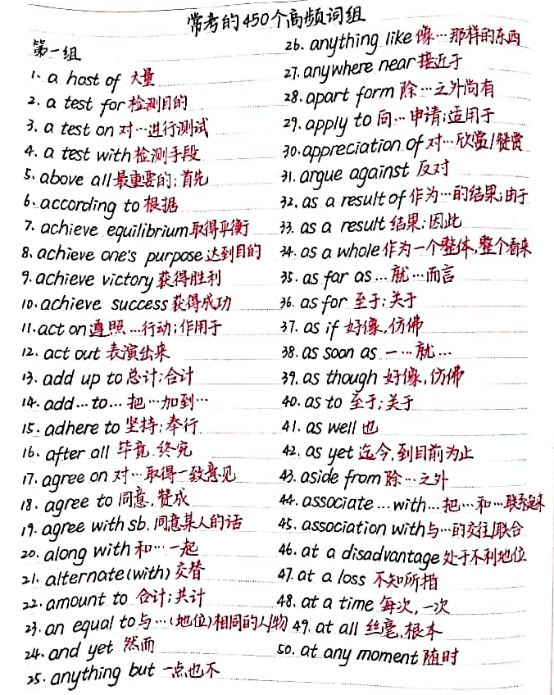 常考的450个高频词组
第一组
1. a host of 大量
2. a test for 检测目的
3. a test on 对…进行测试
4. a test with 检测手段
5. above all 最重要的;首先
6. according to 根据
7. achieve equilibrium 取得平衡
8. achieve one's purpose 达到目的
9. achieve victory 获得胜利
10. achieve success 获得成功
11. act on 遵照…行动;作用于
12. act out 表演出来
13. add up to 总计;合计
14. add...to... 把…加到…
15. adhere to 坚持;奉行
16. after all 毕竟,终究
17. agree on 对…取得一致意见
18. agree to 同意,赞成
19. agree with sb. 同意某人的话
20. along with 和…一起
21. alternate(with) 交替
22. amount to 合计;共计
23. an equal to 与…(地位)相同的人/物
24. and yet 然而
25. anything but 一点也不
26. anything like 像…那样的东西
27. anywhere near 接近于
28. apart form 除…之外尚有
29. apply to 向…申请;适用于
30. appreciation of 对…欣赏/赞赏
31. argue against 反对
32. as a result of 作为…的结果;由于
33. as a result 结果;因此
34. as a whole 作为一个整体,整个看来
35. as far as...就…而言
36. as for 至于;关于
37. as if 好像,仿佛
38. as soon as 一…就…
39. as though 好像,仿佛
40. as to 至于;关于
41. as well 也
42. as yet 迄今,到目前为止
43. aside from 除…之外
44. associate...with...把…和…联系起来
45. association with 与…的交往/联合
46. at a disadvantage 处于不利地位
47. at a loss 不知所措
48. at a time 每次,一次
49. at all 丝毫,根本
50. at any moment 随时